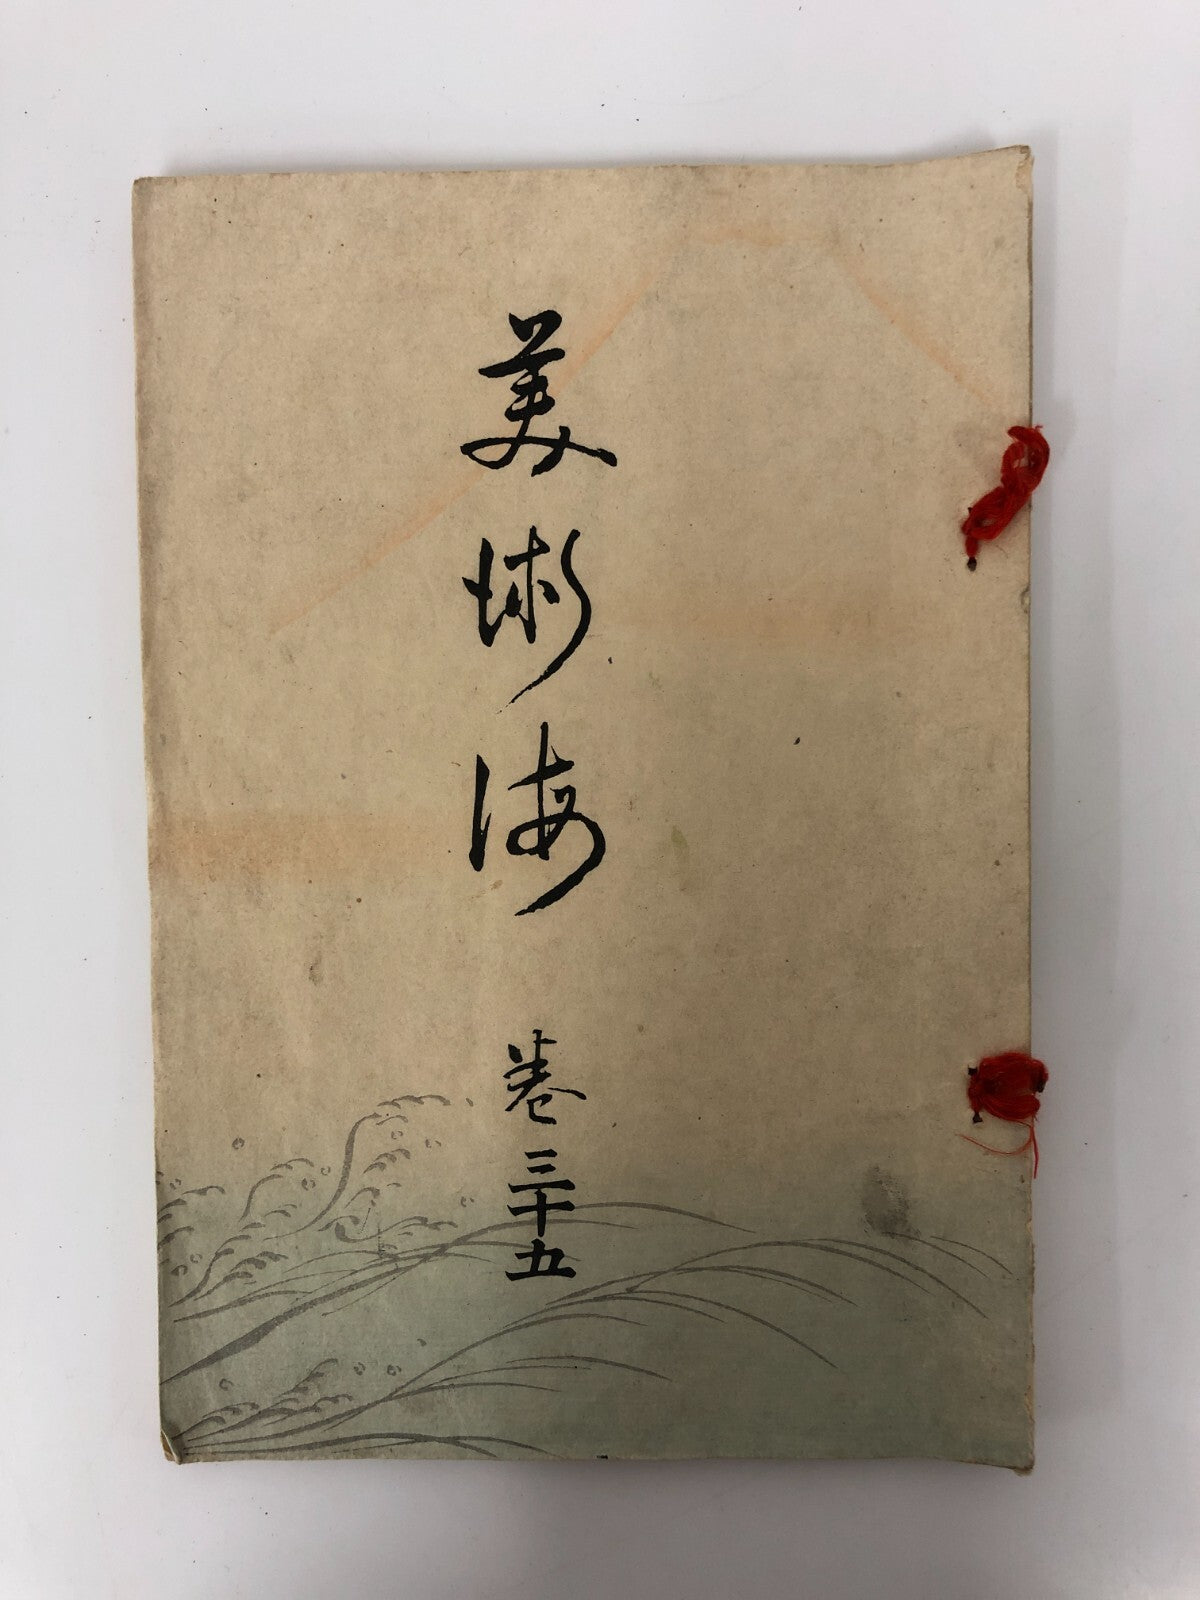 美術海 巻三十五